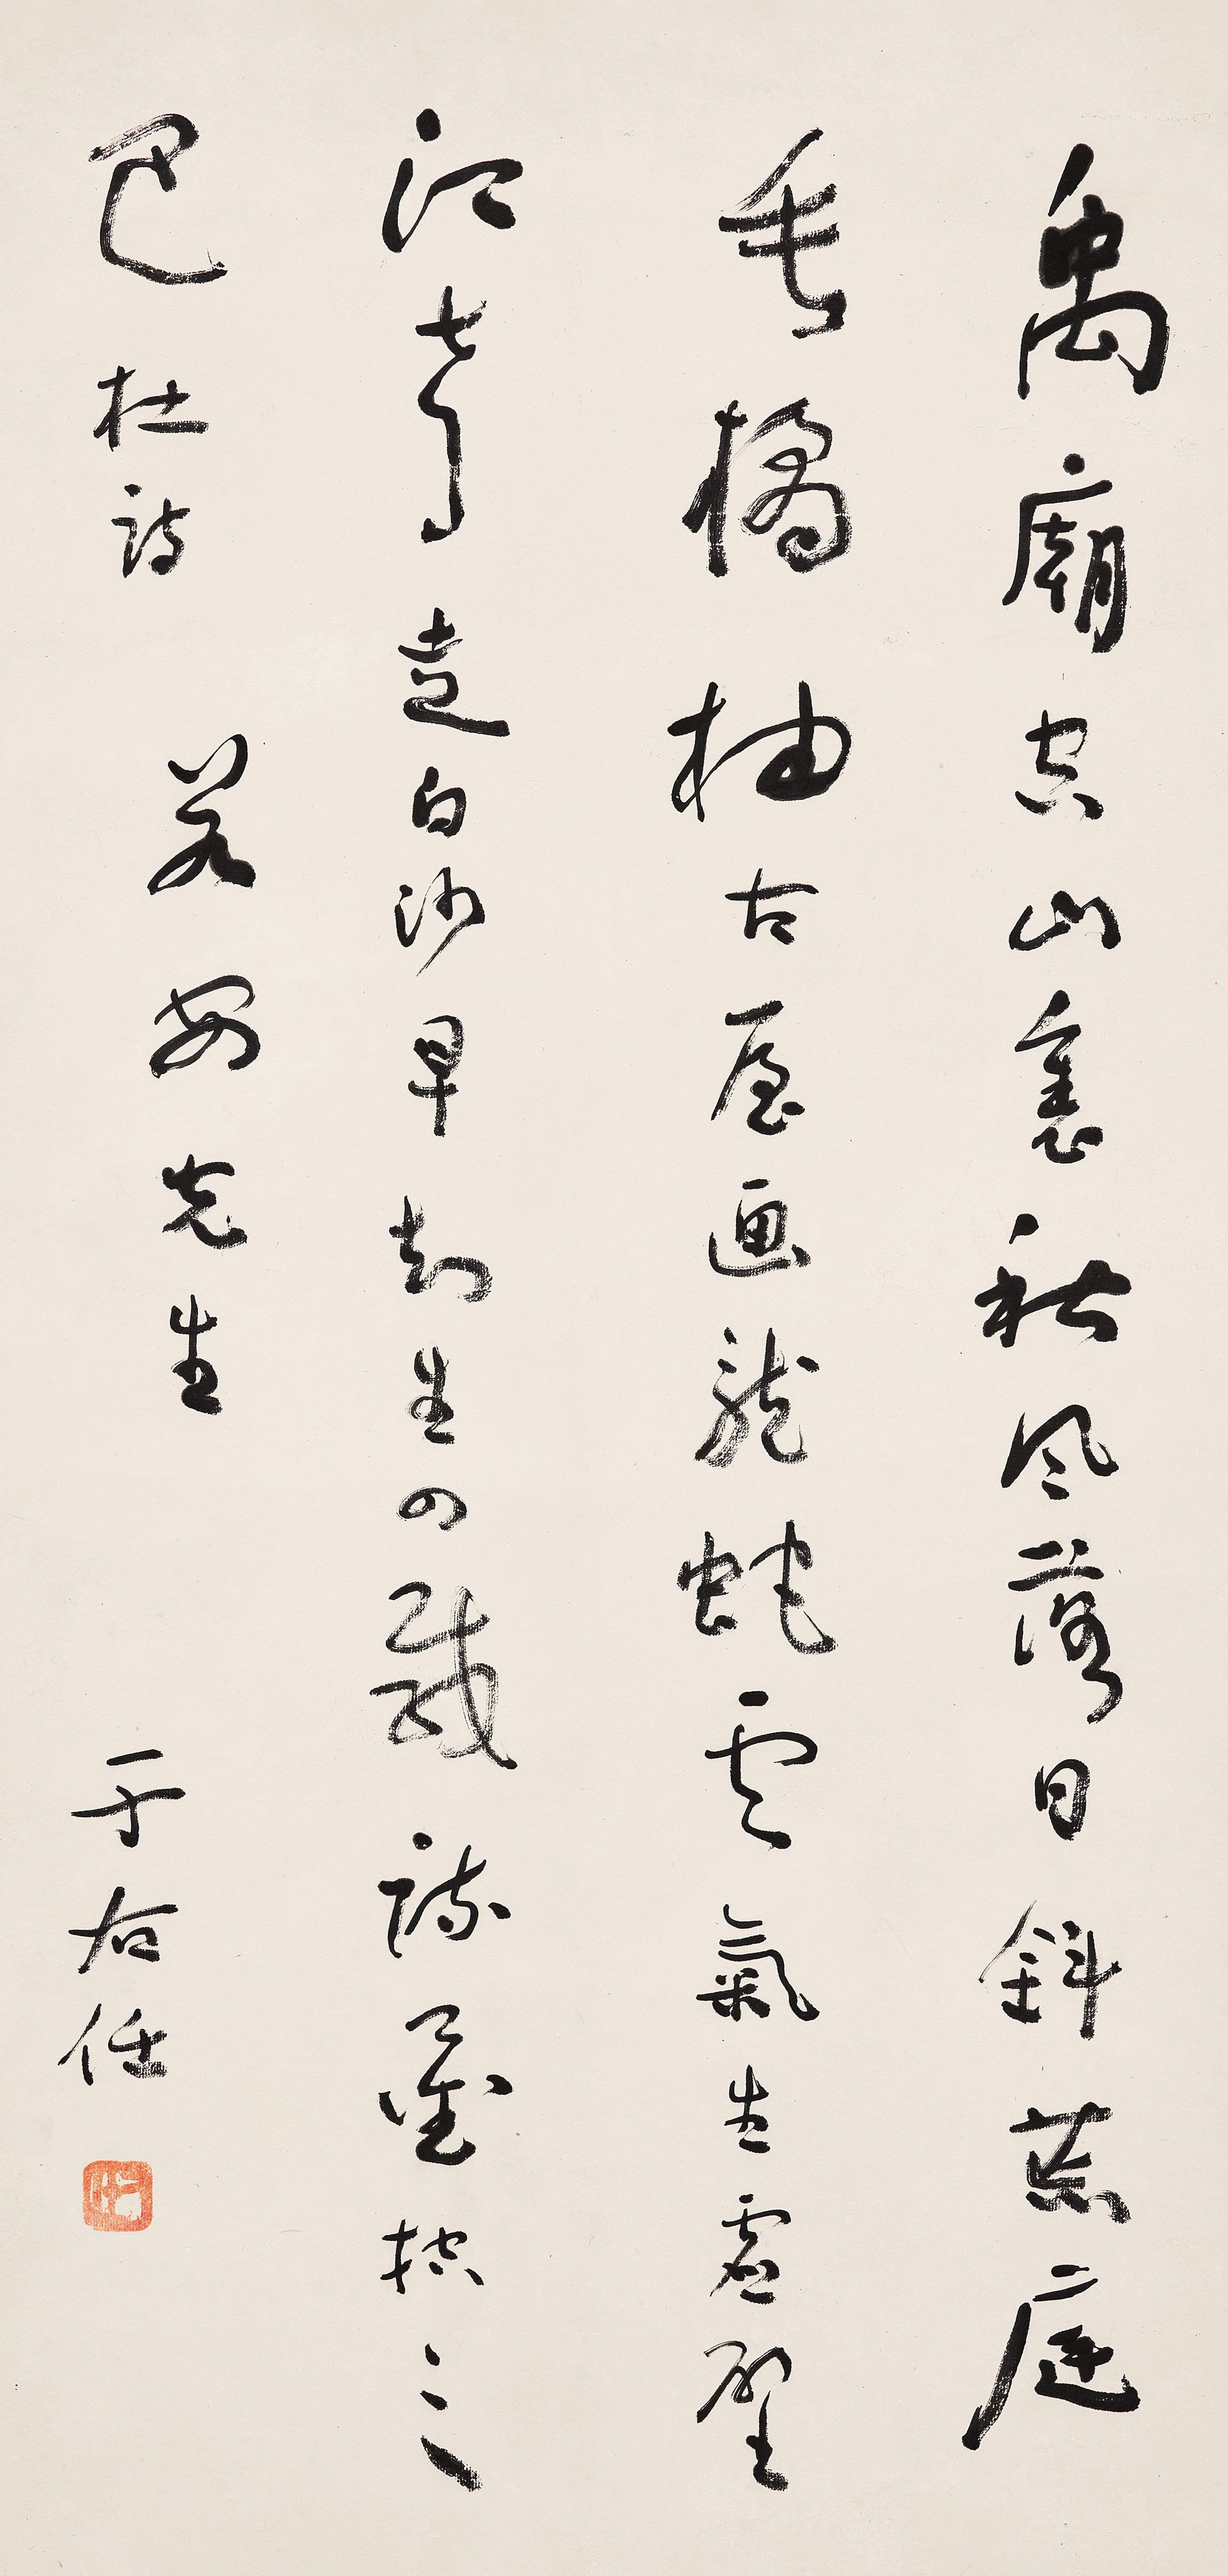 禹廟空山裏秋風落日斜荒庭
垂橘柚古屋画龍蛇雲氣生虛壁
江聲走白沙早知乘四載疏鑿控三
巴 杜詩
若安先生
于右任